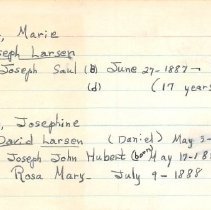 , Marie
Joseph Larsen
Joseph Saul (B) June 27-1887-
(d) (17 years
, Josephine
David Larsen (Daniel) May 2-
Joseph John Hubert (born) May 17-18
Rosa Mary - July 9-1888